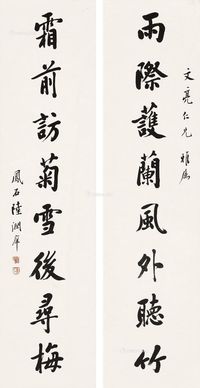 文亮仁兄雅属
雨際護蘭風外聽竹
霜前訪菊雪後尋梅
鳳石陸潤庠